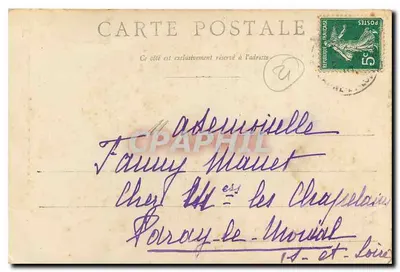 CARTE POSTALE
Ce côté est exclusivement réservé à l'adresse
POSTES
5c
21
Mademoiselle
Fanny Manet
Chez Mrs les Chapelains
Paray-le-Monial
S.-et-Loire